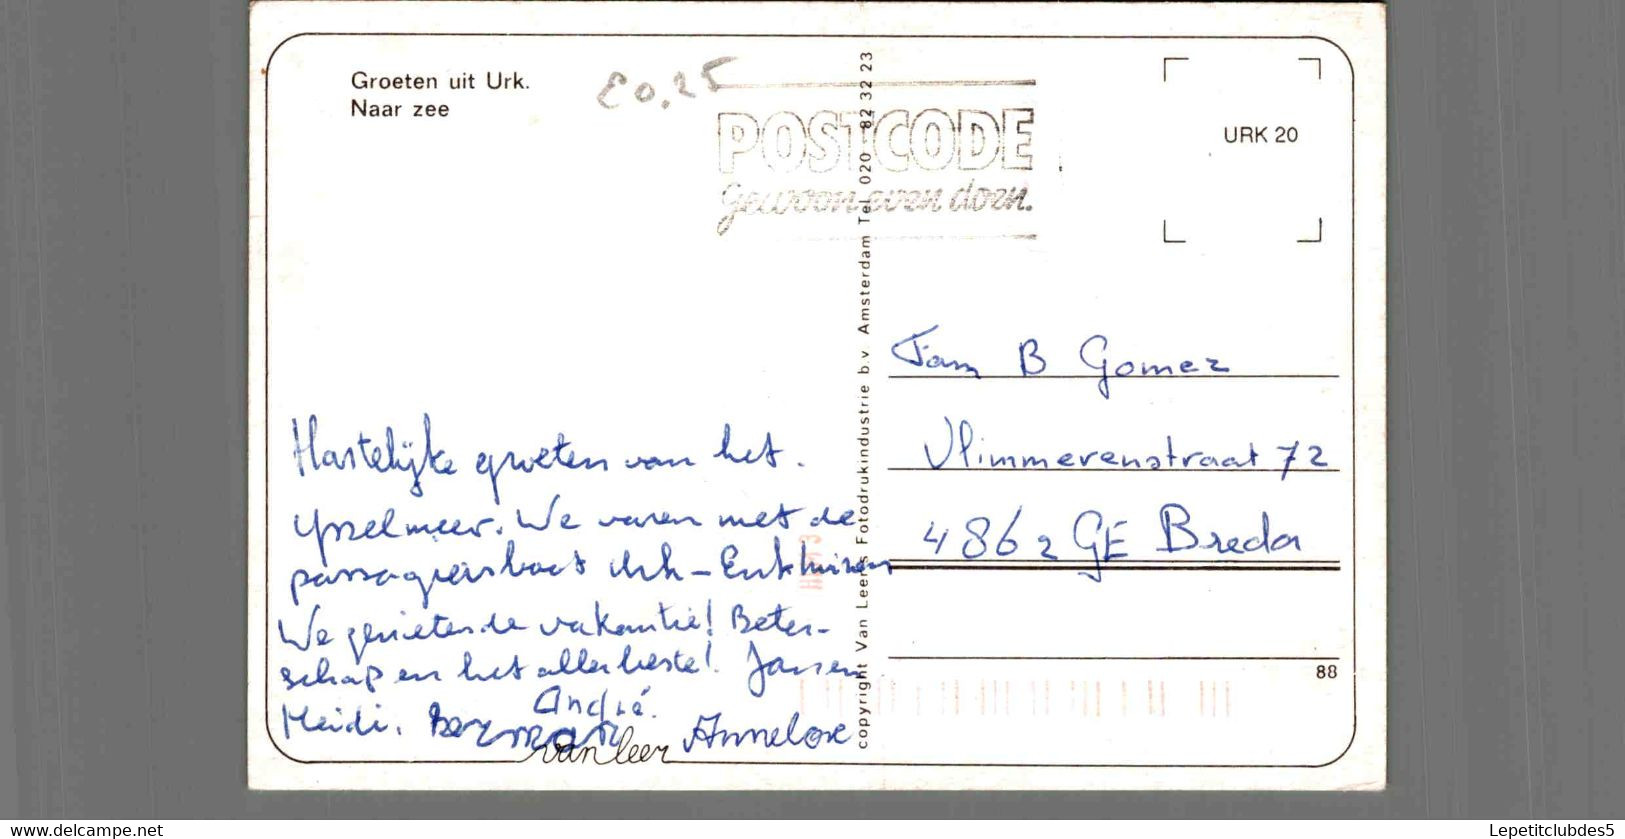 Groeten uit Urk.
Naar zee
€0.25
POSTCODE
gewoon even doen.
URK 20
copyright Van Leer's Fotodrukindustrie b.v. Amsterdam Tel 020 - 82 32 23
Fam B Gomez
Vlimmerenstraat 72
4862 GE Breda
88
Hartelijke groeten van het
ijsselmeer. We varen met de
passagiersboot Urk - Enkhuizen
We genieten de vakantie! Beter-
schap en het allerbeste! Jansen
André.
Heidi. Annelore
van leer
delcampe.net
Lepetitclubdes5